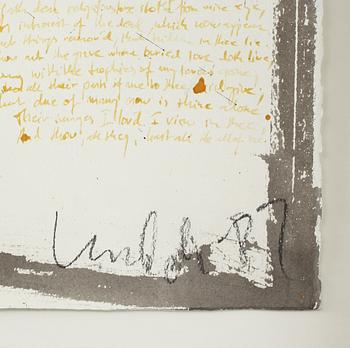 dear religious love stol'n from mine eye,
interest of the dead, which now appear
things remov'd that hidden in thee lie.
art the grave where buried love doth live
with the trophies of my lovers gone,
all their parts of me to thee did give,
due of many now is thine alone
Their images I lov'd I view in thee,
And thou, all they, hast all the all of me.
87